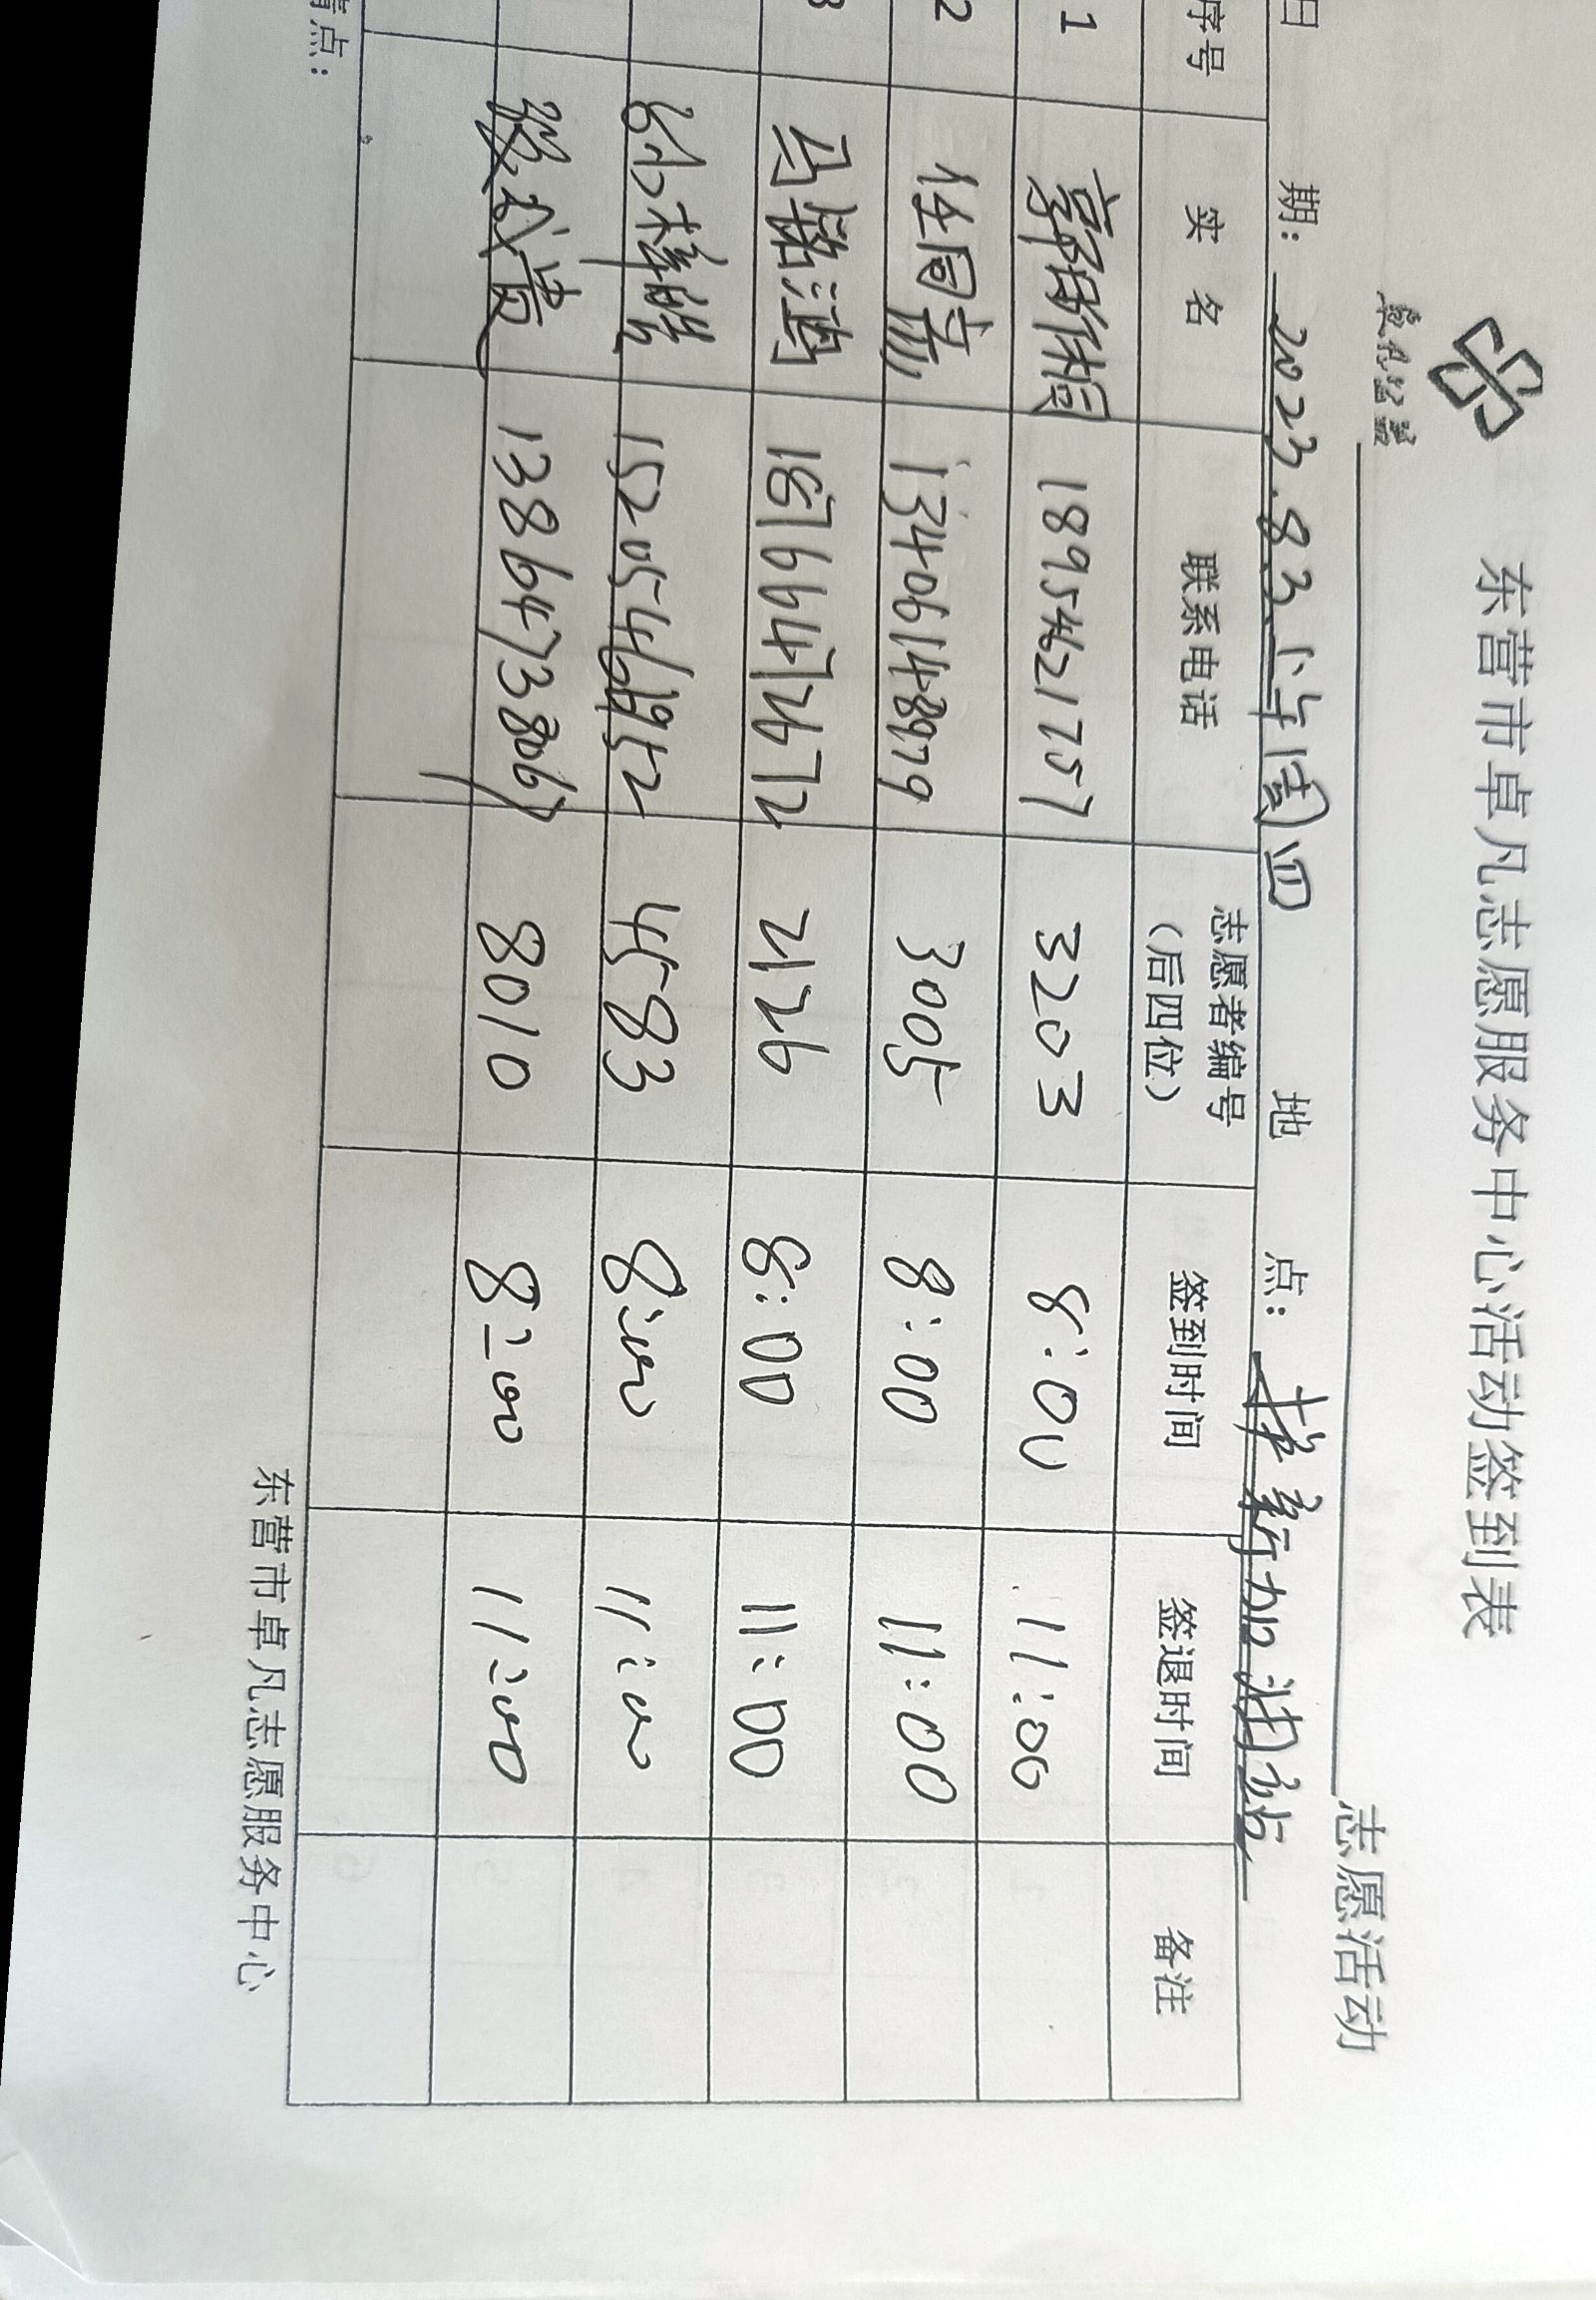 东营市卓凡志愿服务中心活动签到表
卓凡公益
志愿活动
日 期: 2023.8.3.上午 周四 地 点: 新加湖站
序号 实 名 联系电话 志愿者编号(后四位) 签到时间 签退时间 备注
1 18954621757 3203 8:00 11:00
2 任同嘉 13406148979 3005 8:00 11:00
3 马铭鸿 18766472672 2126 8:00 11:00
15205468952 4583 8:00 11:00
13864738067 8010 8:00 11:00
点:
东营市卓凡志愿服务中心